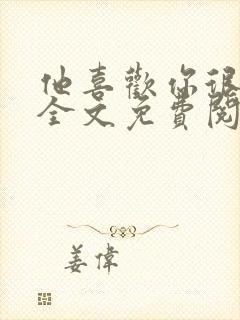 他喜歡你很
全文免費閱
姜偉